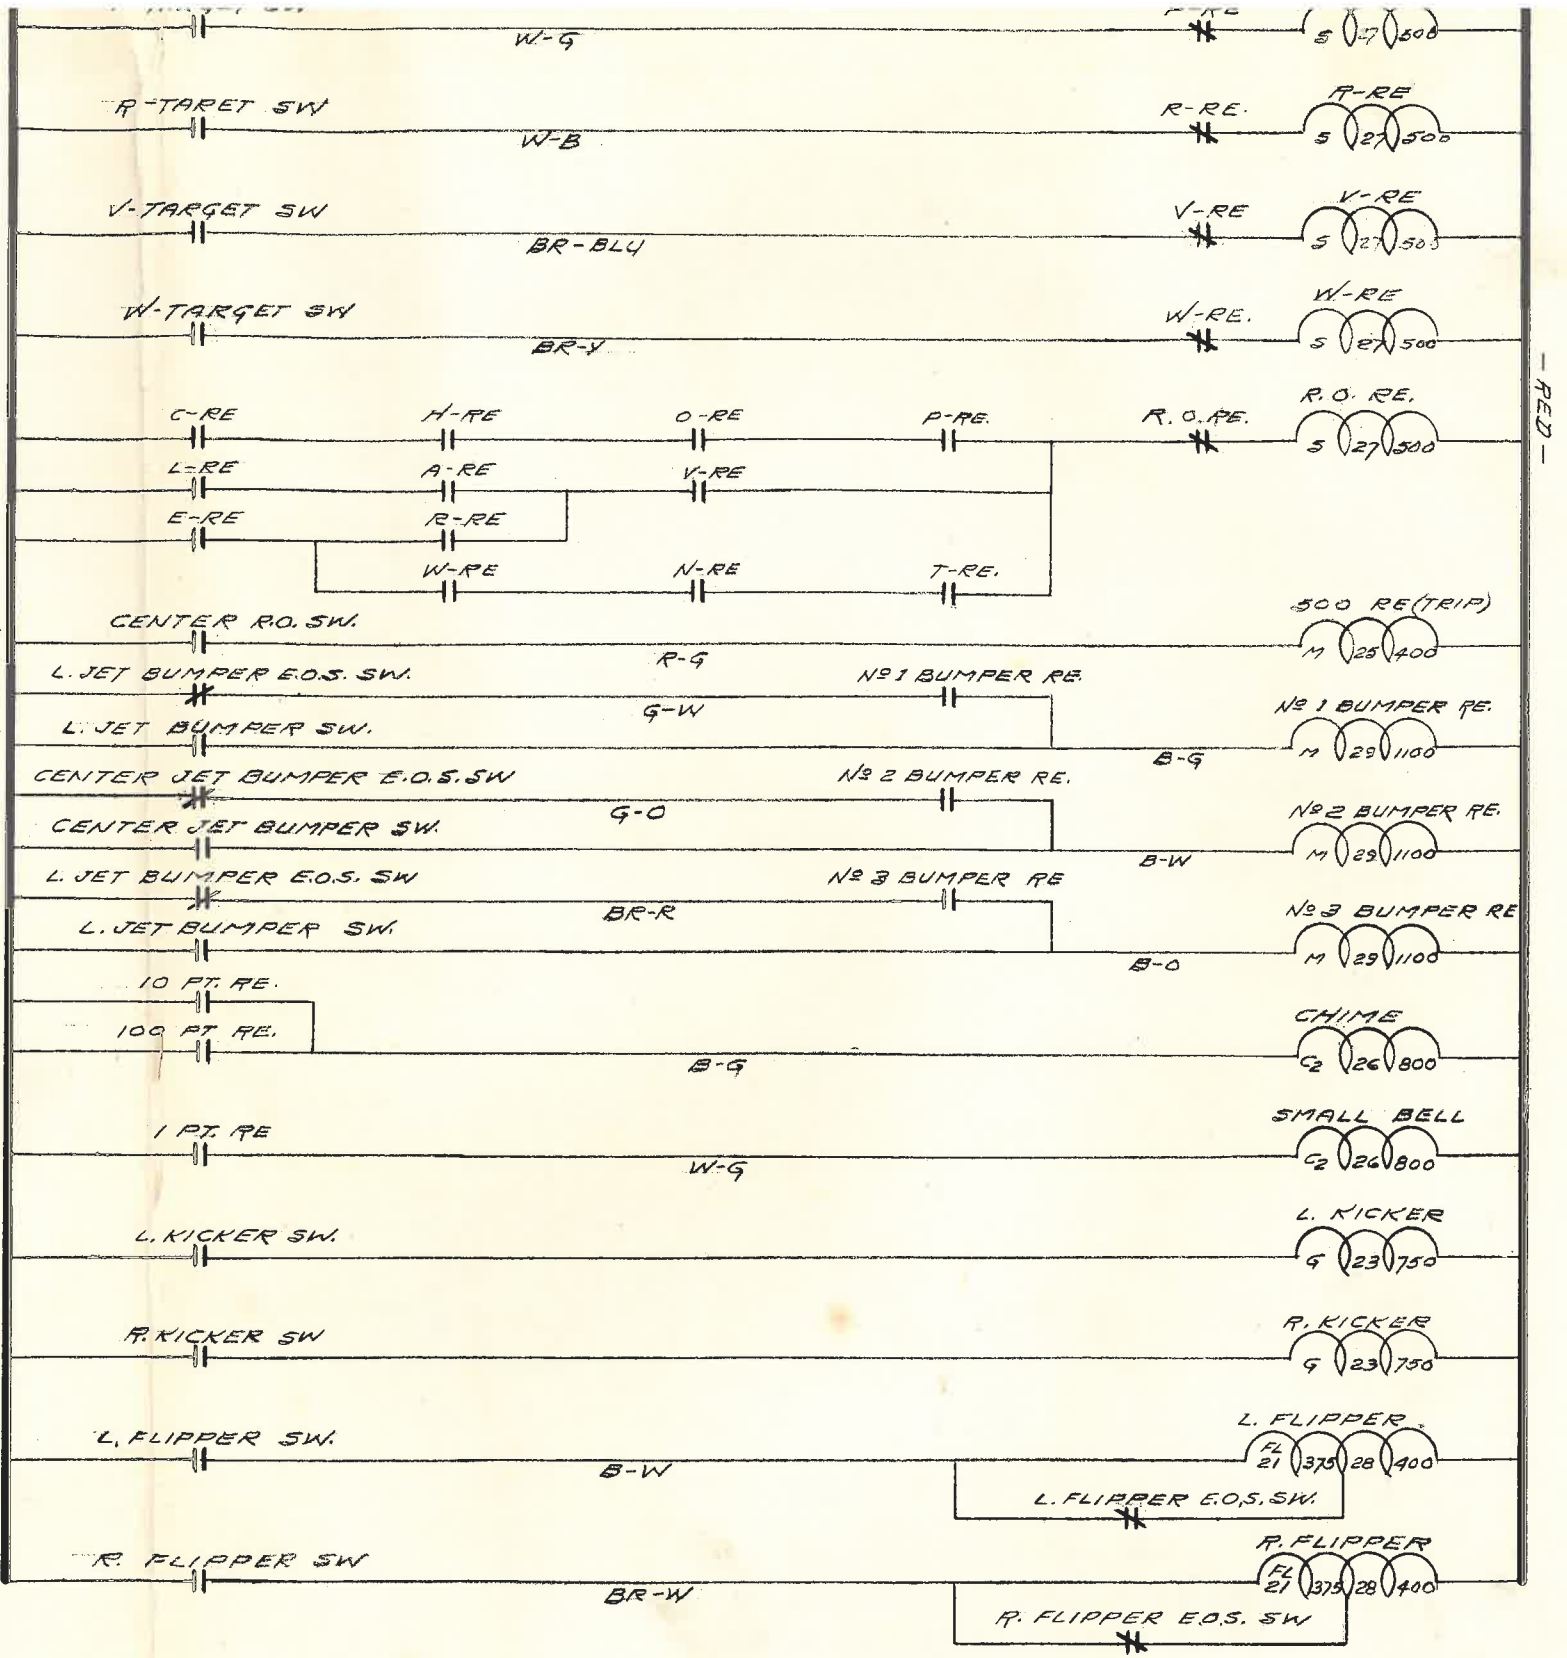 W-G
S 27 500
R-TARET SW
R-RE.
R-RE
W-B
S 27 500
V-TARGET SW
V-RE
V-RE
BR-BLU
S 27 500
W-TARGET SW
W-RE.
W-RE
BR-Y
S 27 500
-RED-
C-RE
H-RE
O-RE
P-RE.
R.O.RE.
R.O. RE.
S 27 500
L-RE
A-RE
V-RE
E-RE
R-RE
W-RE
N-RE
T-RE.
CENTER R.O. SW.
500 RE(TRIP)
R-G
M 25 400
L. JET BUMPER E.O.S. SW.
Nº1 BUMPER RE.
G-W
L. JET BUMPER SW.
Nº 1 BUMPER RE.
B-G
M 29 1100
CENTER JET BUMPER E.O.S.SW
Nº 2 BUMPER RE.
G-O
CENTER JET BUMPER SW.
Nº2 BUMPER RE.
B-W
M 29 1100
L. JET BUMPER E.O.S. SW
Nº 3 BUMPER RE
BR-R
L. JET BUMPER SW.
Nº3 BUMPER RE
B-O
M 29 1100
10 PT. RE.
100 PT RE.
CHIME
B-G
C2 26 800
1 PT. RE
SMALL BELL
W-G
C2 26 800
L. KICKER SW.
L. KICKER
G 23 750
R. KICKER SW
R. KICKER
G 23 750
L. FLIPPER SW.
L. FLIPPER
B-W
FL 21 375 28 400
L. FLIPPER E.O.S. SW.
R. FLIPPER SW
R. FLIPPER
BR-W
FL 21 375 28 400
R. FLIPPER E.O.S. SW